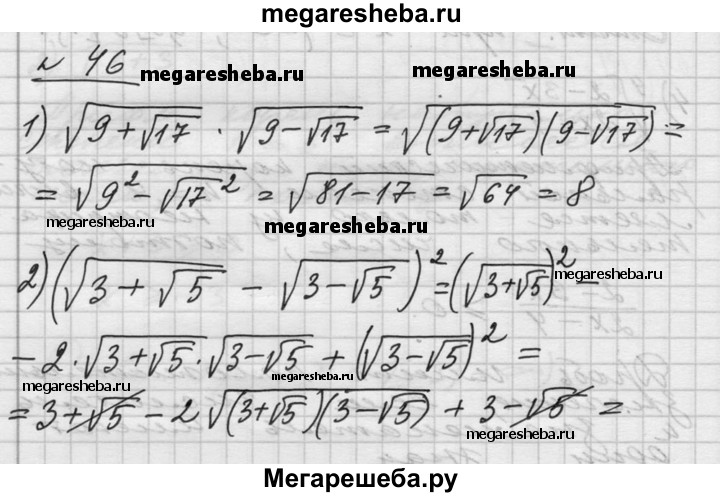 megaresheba.ru
№ 46
megaresheba.ru megaresheba.ru
1) √(9+√17) · √(9-√17) = √((9+√17)(9-√17)) =
= √(9² - √17²) = √(81-17) = √64 = 8
megaresheba.ru megaresheba.ru
2) (√(3+√5) - √(3-√5))² = (√(3+√5))² -
megaresheba.ru
- 2 · √(3+√5) · √(3-√5) + (√(3-√5))² =
megaresheba.ru megaresheba.ru
= 3+√5 - 2√((3+√5)(3-√5)) + 3-√5 =
megaresheba.ru
Мегарешеба.ру